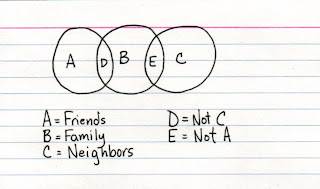 A D B E C
A = Friends
B = Family
C = Neighbors
D = Not C
E = Not A